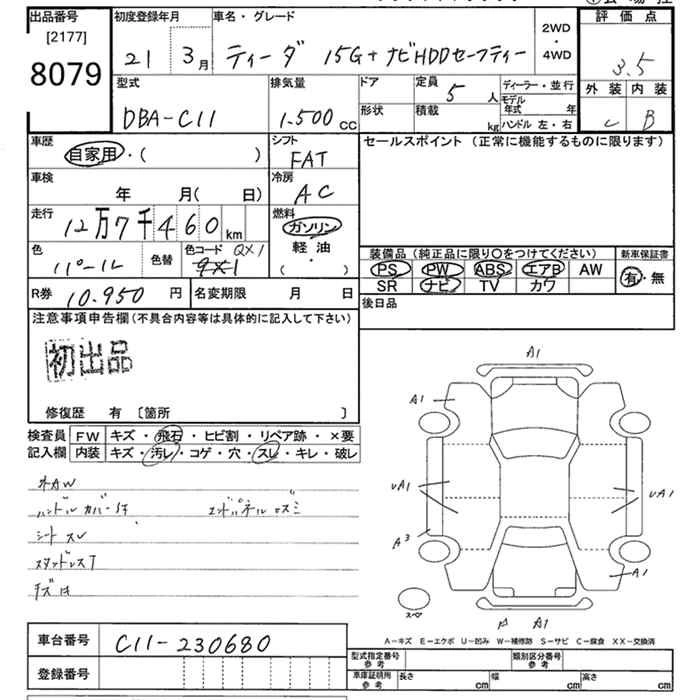 出品番号
[2177]
8079
初度登録年月
21 3月
車名・グレード
ティーダ 15G+ナビHDDセーフティー
2WD
・
4WD
評価点
3.5
外装 内装
C B
型式
DBA-C11
排気量
1.500 cc
ドア
形状
定員 5 人
積載 kg
ディーラー・並行
モデル年式 年
ハンドル 左・右
車歴
自家用・( )
シフト
FAT
セールスポイント (正常に機能するものに限ります)
車検
年 月( 日)
冷房
AC
走行 12万7千460km
燃料
ガソリン
軽油
・
( )
色
パール
色替
色コード QX1
装備品 (純正品に限り○をつけてください)
PS PW ABS エアB AW
SR ナビ TV カワ
新車保証書
有・無
R券 10.950 円
名変期限 月 日
後日品
注意事項申告欄(不具合内容等は具体的に記入して下さい)
初出品
修復歴 有 〔箇所 〕
検査員
記入欄
FW キズ・飛石・ヒビ割・リペア跡・×要
内装 キズ・汚レ・コゲ・穴・スレ・キレ・破レ
外AW
ハンドルカバーS付
シートスレ
スタッドレスT
A1
A1
UA1
UA1
A3
A1
スペ
A1
A－キズ E－エクボ U－凹み W－補修跡 S－サビ C－腐食 XX－交換済
車台番号 C11-230680
登録番号
型式指定番号
参考
類別区分番号
参考
車庫証明用
参考
長さ cm
幅 cm
高さ cm